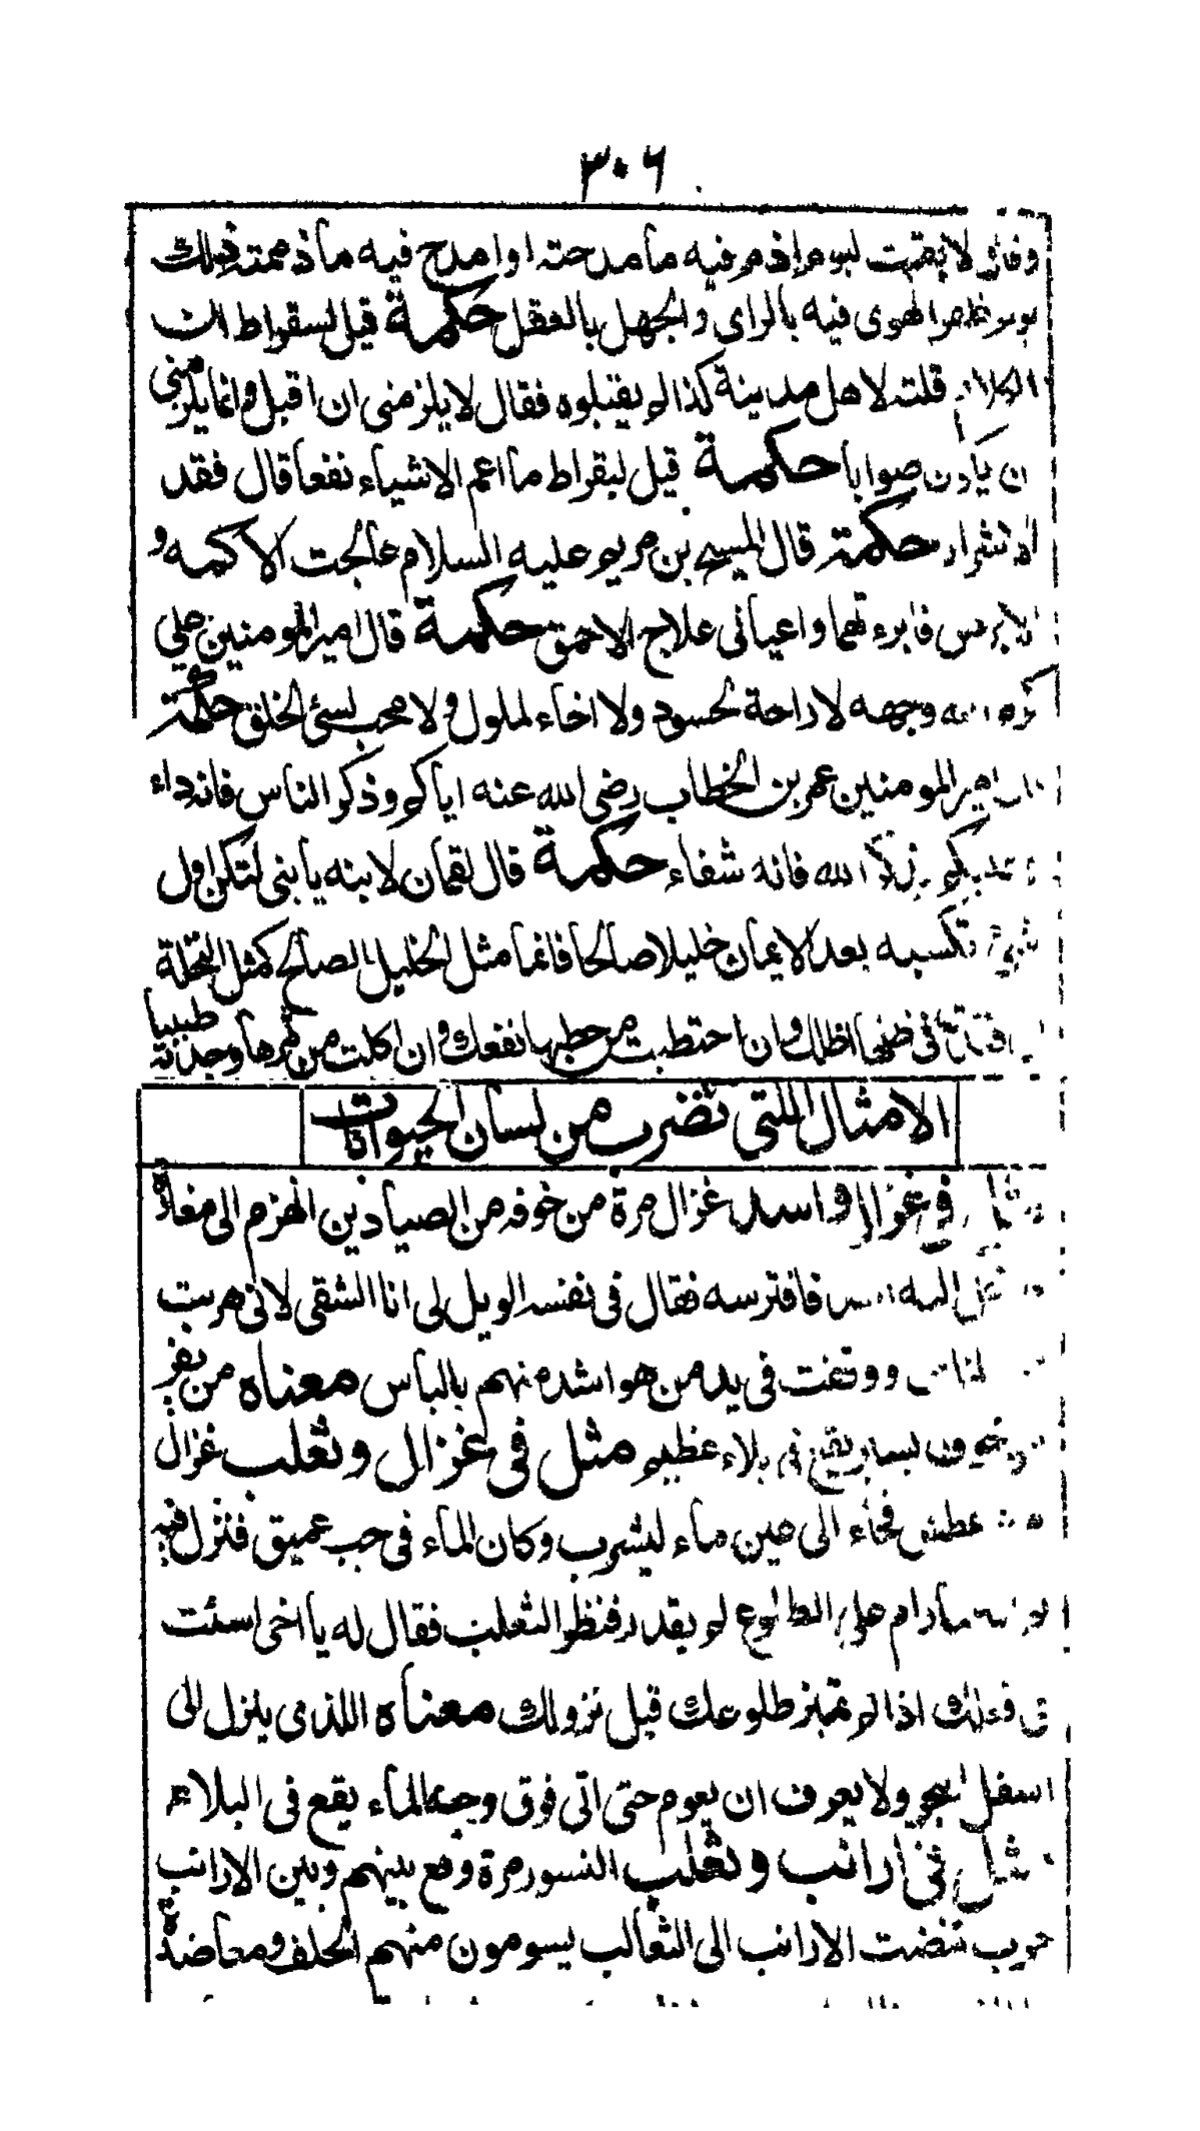 ٣٠٦
وقال لا بقيت ليوم اذم فيه ما مدحته او امدح فيه ما ذممته ذلك
يوم ظفر الهوى فيه بالراى والجهل بالعقل حكمة قيل لسقراط ان
الكلام قلته لاهل مدينة كذا لم يقبلوه فقال لا يلزمنى ان اقبل وانما يلزمنى
ان يكون صوابا حكمة قيل لبقراط ما اعم الاشياء نفعا قال فقد
الاشرار حكمة قال المسيح بن مريم عليه السلام عالجت الاكمه و
الابرص فابرءتهما واعيانى علاج الاحمق حكمة قال امير المومنين على
كرم الله وجهه لا راحة لحسود ولا اخاء لملول ولا محب لسئ الخلق حكمة
قال امير المومنين عمر بن الخطاب رضى الله عنه اياكم وذكر الناس فانه داء
وعليكم بذكر الله فانه شفاء حكمة قال لقمان لابنه يا بنى لتكن اول
شئ تكسبه بعد الايمان خليلا صالحا فانما مثل الخليل الصالح كمثل النخلة
ان قعدت فى ظلها اظلك وان احتطبت من حطبها نفعك وان اكلت من ثمرها وجدته طيبا
الامثال اللتى تضرب من لسان الحيوانات
مثل فى غزال واسد غزال مرة من خوفه من الصيادين انهزم الى مغارة
فدخل اليه اسد فافترسه فقال فى نفسه الويل لى انا الشقى لانى هربت
من الناس ووقعت فى يد من هو اشد منهم بالباس معناه من يفر
من خوف يسير يقع فى بلاء عظيم مثل فى غزال وثعلب غزال
مرة عطش فجاء الى عين ماء ليشرب وكان الماء فى جب عميق فنزل فيه
ثم انه لما رام على الطلوع لم يقدر فنظر الثعلب فقال له يا اخى اسئت
فى فعلك اذا لم تميز طلوعك قبل نزولك معناه اللذى ينزل الى
اسفل البحر ولا يعرف ان يعوم حتى اتى فوق وجه الماء يقع فى البلاء
مثل فى ارانب وثعلب النسور مرة وقع بينهم وبين الارانب
حرب فمضت الارانب الى الثعالب يسومون منهم الحلف ومعاضدة